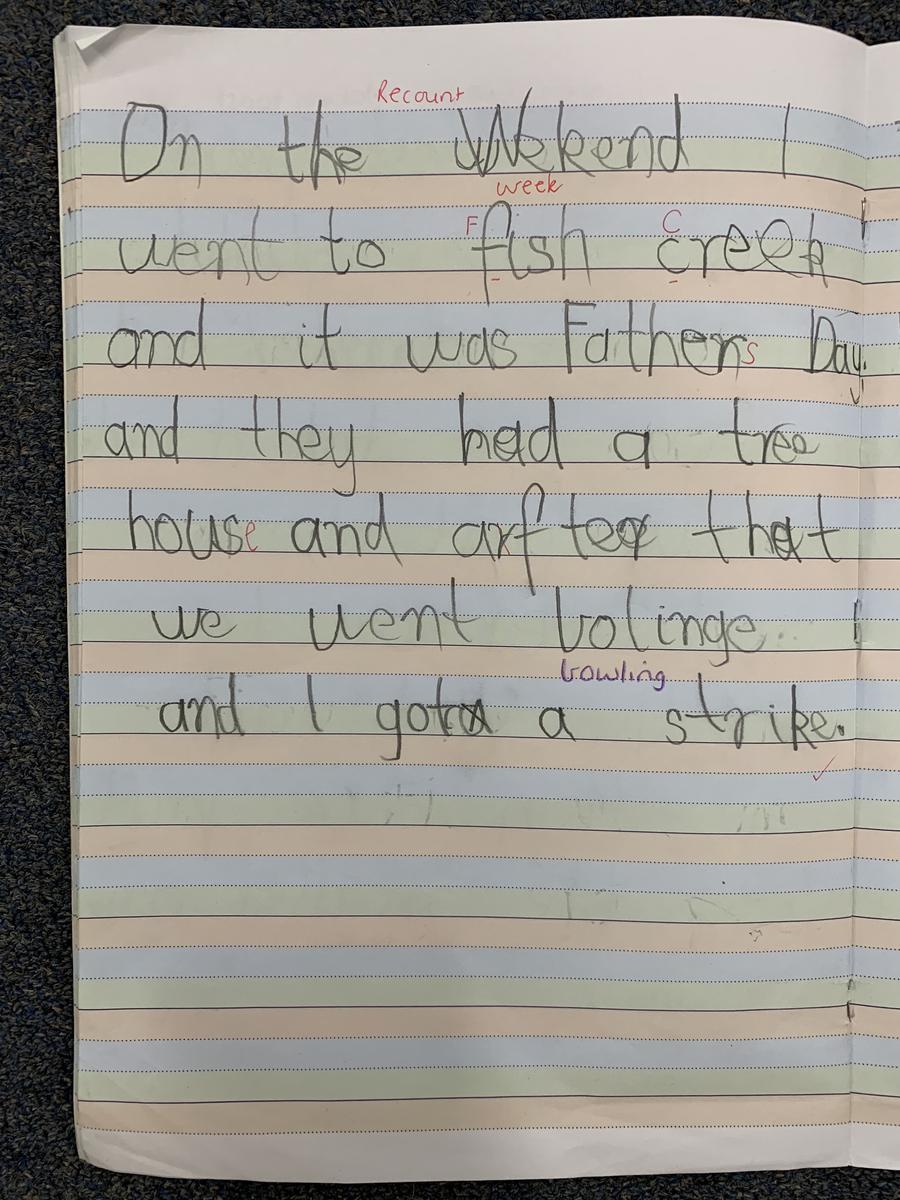 Recount
On the Wekend I
week
went to fish creek
F C
and it was Fathers Day.
and they had a tree
house and arfter that
we went bolinge
bowling
and I got a strike.